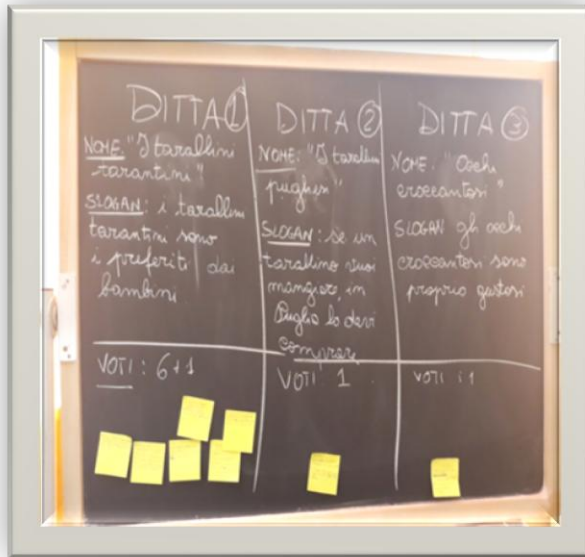 DITTA 1
NOME: "I tarallini
tarantini"
SLOGAN: i tarallini
tarantini sono
i preferiti dai
bambini
VOTI: 6+1
DITTA 2
NOME: "I tarallini
pugliesi"
SLOGAN: se un
tarallino vuoi
mangiare, in
Puglia lo devi
comprare
VOTI: 1
DITTA 3
NOME: "Occhi
croccantosi"
SLOGAN gli occhi
croccantosi sono
proprio gustosi
VOTI: 1